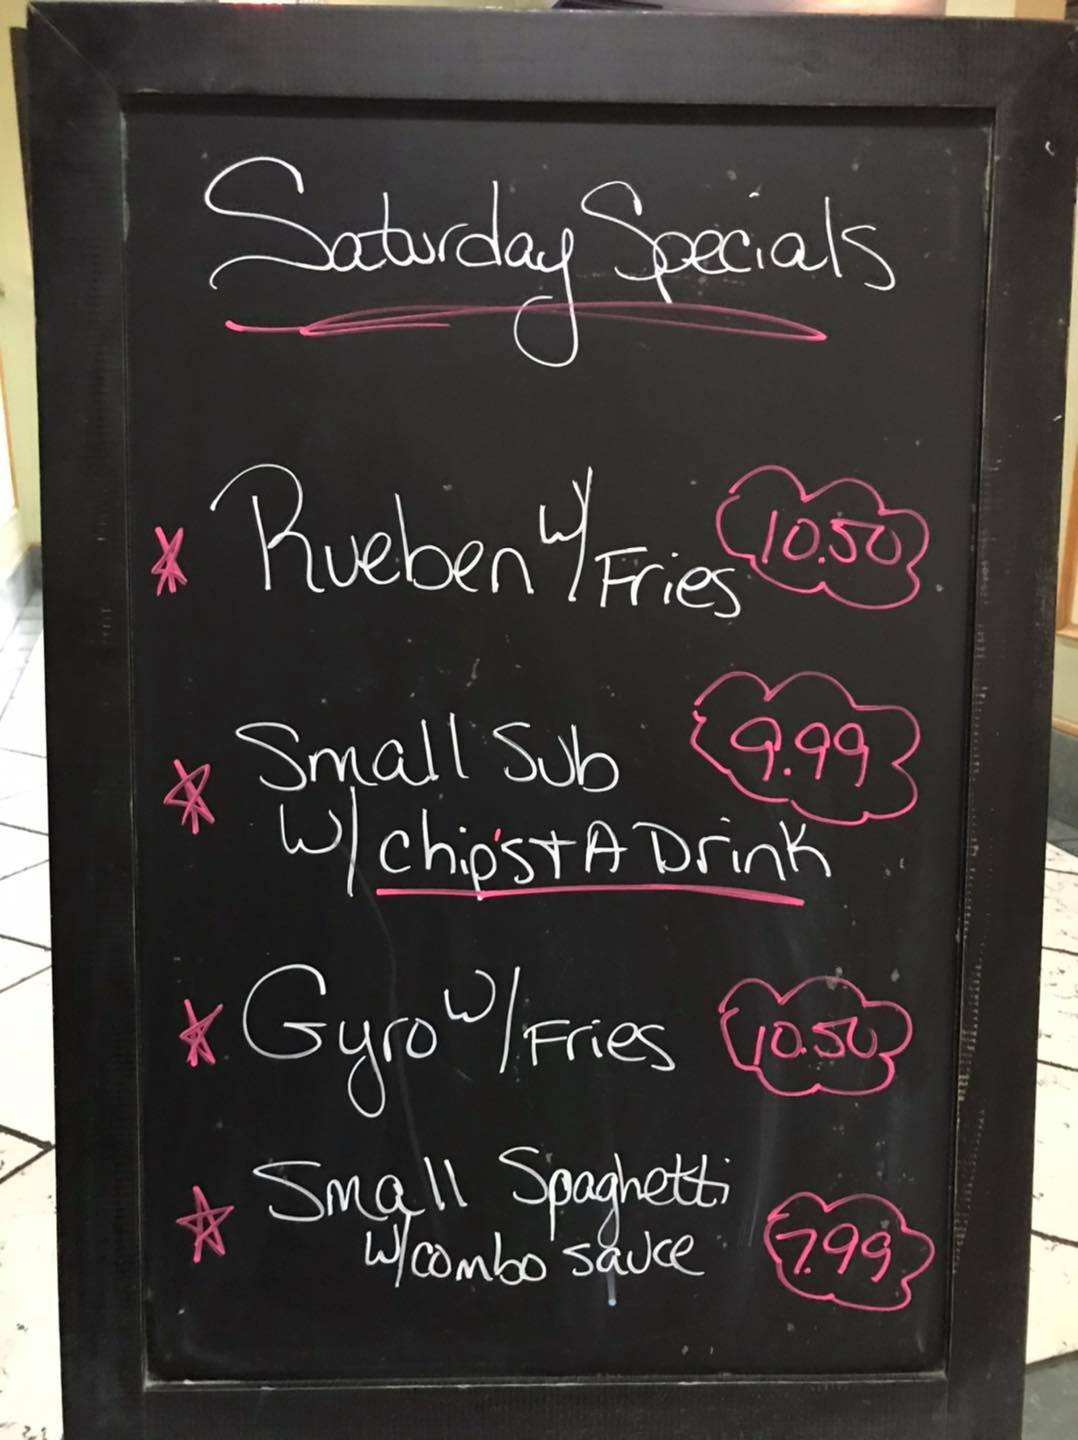 Saturday Specials
Rueben w/ Fries 10.50
Small Sub 9.99
w/ chip's + A Drink
Gyro w/ Fries 10.50
Small Spaghetti
w/ combo sauce 7.99